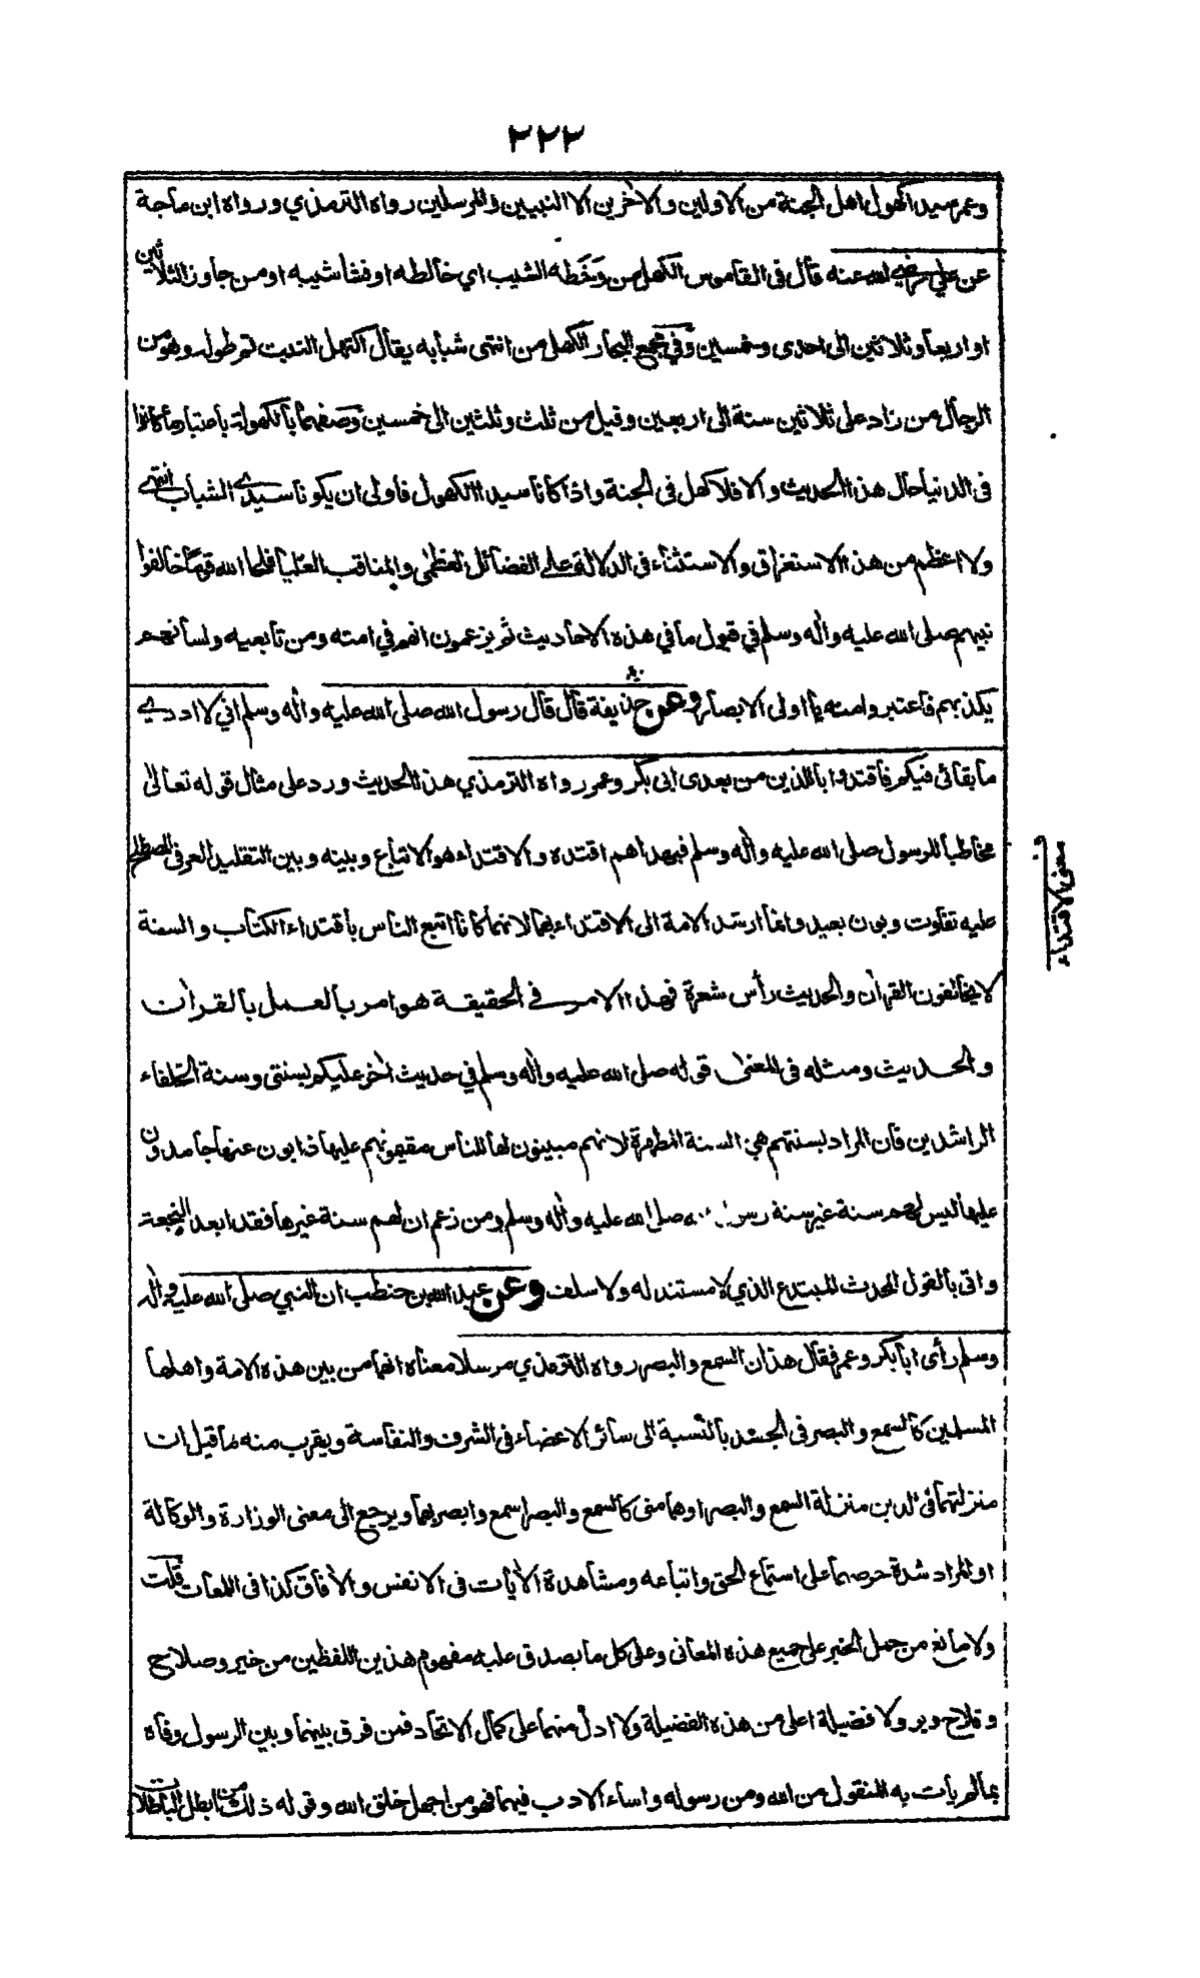 ٢٢٢
وعمر سيدا كهول اهل الجنة من الاولين والاخرين الا النبيين والمرسلين رواه الترمذي ورواه ابن ماجة
عن علي رضي الله عنه قال فى القاموس الكهل من وخطه الشيب اي خالطه او فشا شيبه او من جاوز الثلاثين
او اربعا وثلاثين الى احدى وخمسين وفي مجمع البحار الكهل من انتهى شبابه يقال اكتهل النبت تم طوله وهو من
الرجال من زاد على ثلاثين سنة الى اربعين وقيل من ثلث وثلثين الى خمسين وصفهما بالكهولة باعتبار ما كانوا
فى الدنيا حال هذا الحديث والا فلا كهل فى الجنة واذا كانا سيدا الكهول فاولى ان يكونا سيدي الشباب انتهى
ولا اعظم من هذا الاستغراق والاستثناء فى الدلالة على الفضائل العظمى والمناقب العليا قاتل الله قوما خالفوا
نبيهم صلى الله عليه واله وسلم في قبول ما في هذه الاحاديث ثم يزعمون انهم في امته ومن تابعيه ولسانهم
يكذبهم فاعتبروا منه يا اولى الابصار وعن حذيفة قال قال رسول الله صلى الله عليه واله وسلم اني لا ادري
ما بقائى فيكم فاقتدوا باللذين من بعدى ابى بكر وعمر رواه الترمذي هذا الحديث ورد على مثال قوله تعالى
مخاطبا للرسول صلى الله عليه واله وسلم فبهداهم اقتده والاقتداء هو الاتباع وبينه وبين التقليد العرفى المصطلح
عليه تفاوت وبون بعيد وانما ارشد الامة الى الاقتداء بهما لانهما كانا اتبع الناس باقتداء الكتاب والسنة
لا يخالفون القران والحديث رأس شعرة فهذا الامر في الحقيقة هو امر بالعمل بالقران
والحديث ومثله فى المعنى قوله صلى الله عليه واله وسلم في حديث اخر عليكم بسنتى وسنة الخلفاء
الراشدين فان المراد بسنتهم هي السنة المطهرة لانهم مبينون لها للناس مقيمونهم عليها ذابون عنها جامدون
عليها ليس لهم سنة غير سنة رسول الله صلى الله عليه واله وسلم ومن زعم ان لهم سنة غيرها فقد ابعد النجعة
واتى بالقول المحدث المبتدع الذي لا مستند له ولا سلف وعن عبد الله بن حنطب ان النبي صلى الله عليه واله
وسلم رأى ابا بكر وعمر فقال هذان السمع والبصر رواه الترمذي مرسلا معناه انهما من بين هذه الامة واهلها
المسلمين كالسمع والبصر فى الجسد بالنسبة الى سائر الاعضاء فى الشرف والنفاسة ويقرب منه ما قيل ان
منزلتهما فى الدين منزلة السمع والبصر او هما منى كالسمع والبصر اسمع وابصر بهما ويرجع الى معنى الوزارة والوكالة
او المراد شدة حرصهما على استماع الحق واتباعه ومشاهدة الايات فى الانفس والافاق كذا فى اللمعات قلت
ولا مانع من حمل الخبر على جميع هذه المعانى وعلى كل ما يصدق عليه مفهوم هذين اللفظين من خير وصلاح
وفلاح وبر ولا فضيلة اعلى من هذه الفضيلة ولا ادل منهما على كمال الاتحاد فمن فرق بينهما وبين الرسول وفاه
بما لم يأت به المنقول من الله ومن رسوله واساء الادب فيهما فهو من اجهل خلق الله وقوله ذلك من ابطل الباطلات
معنى الاقتداء